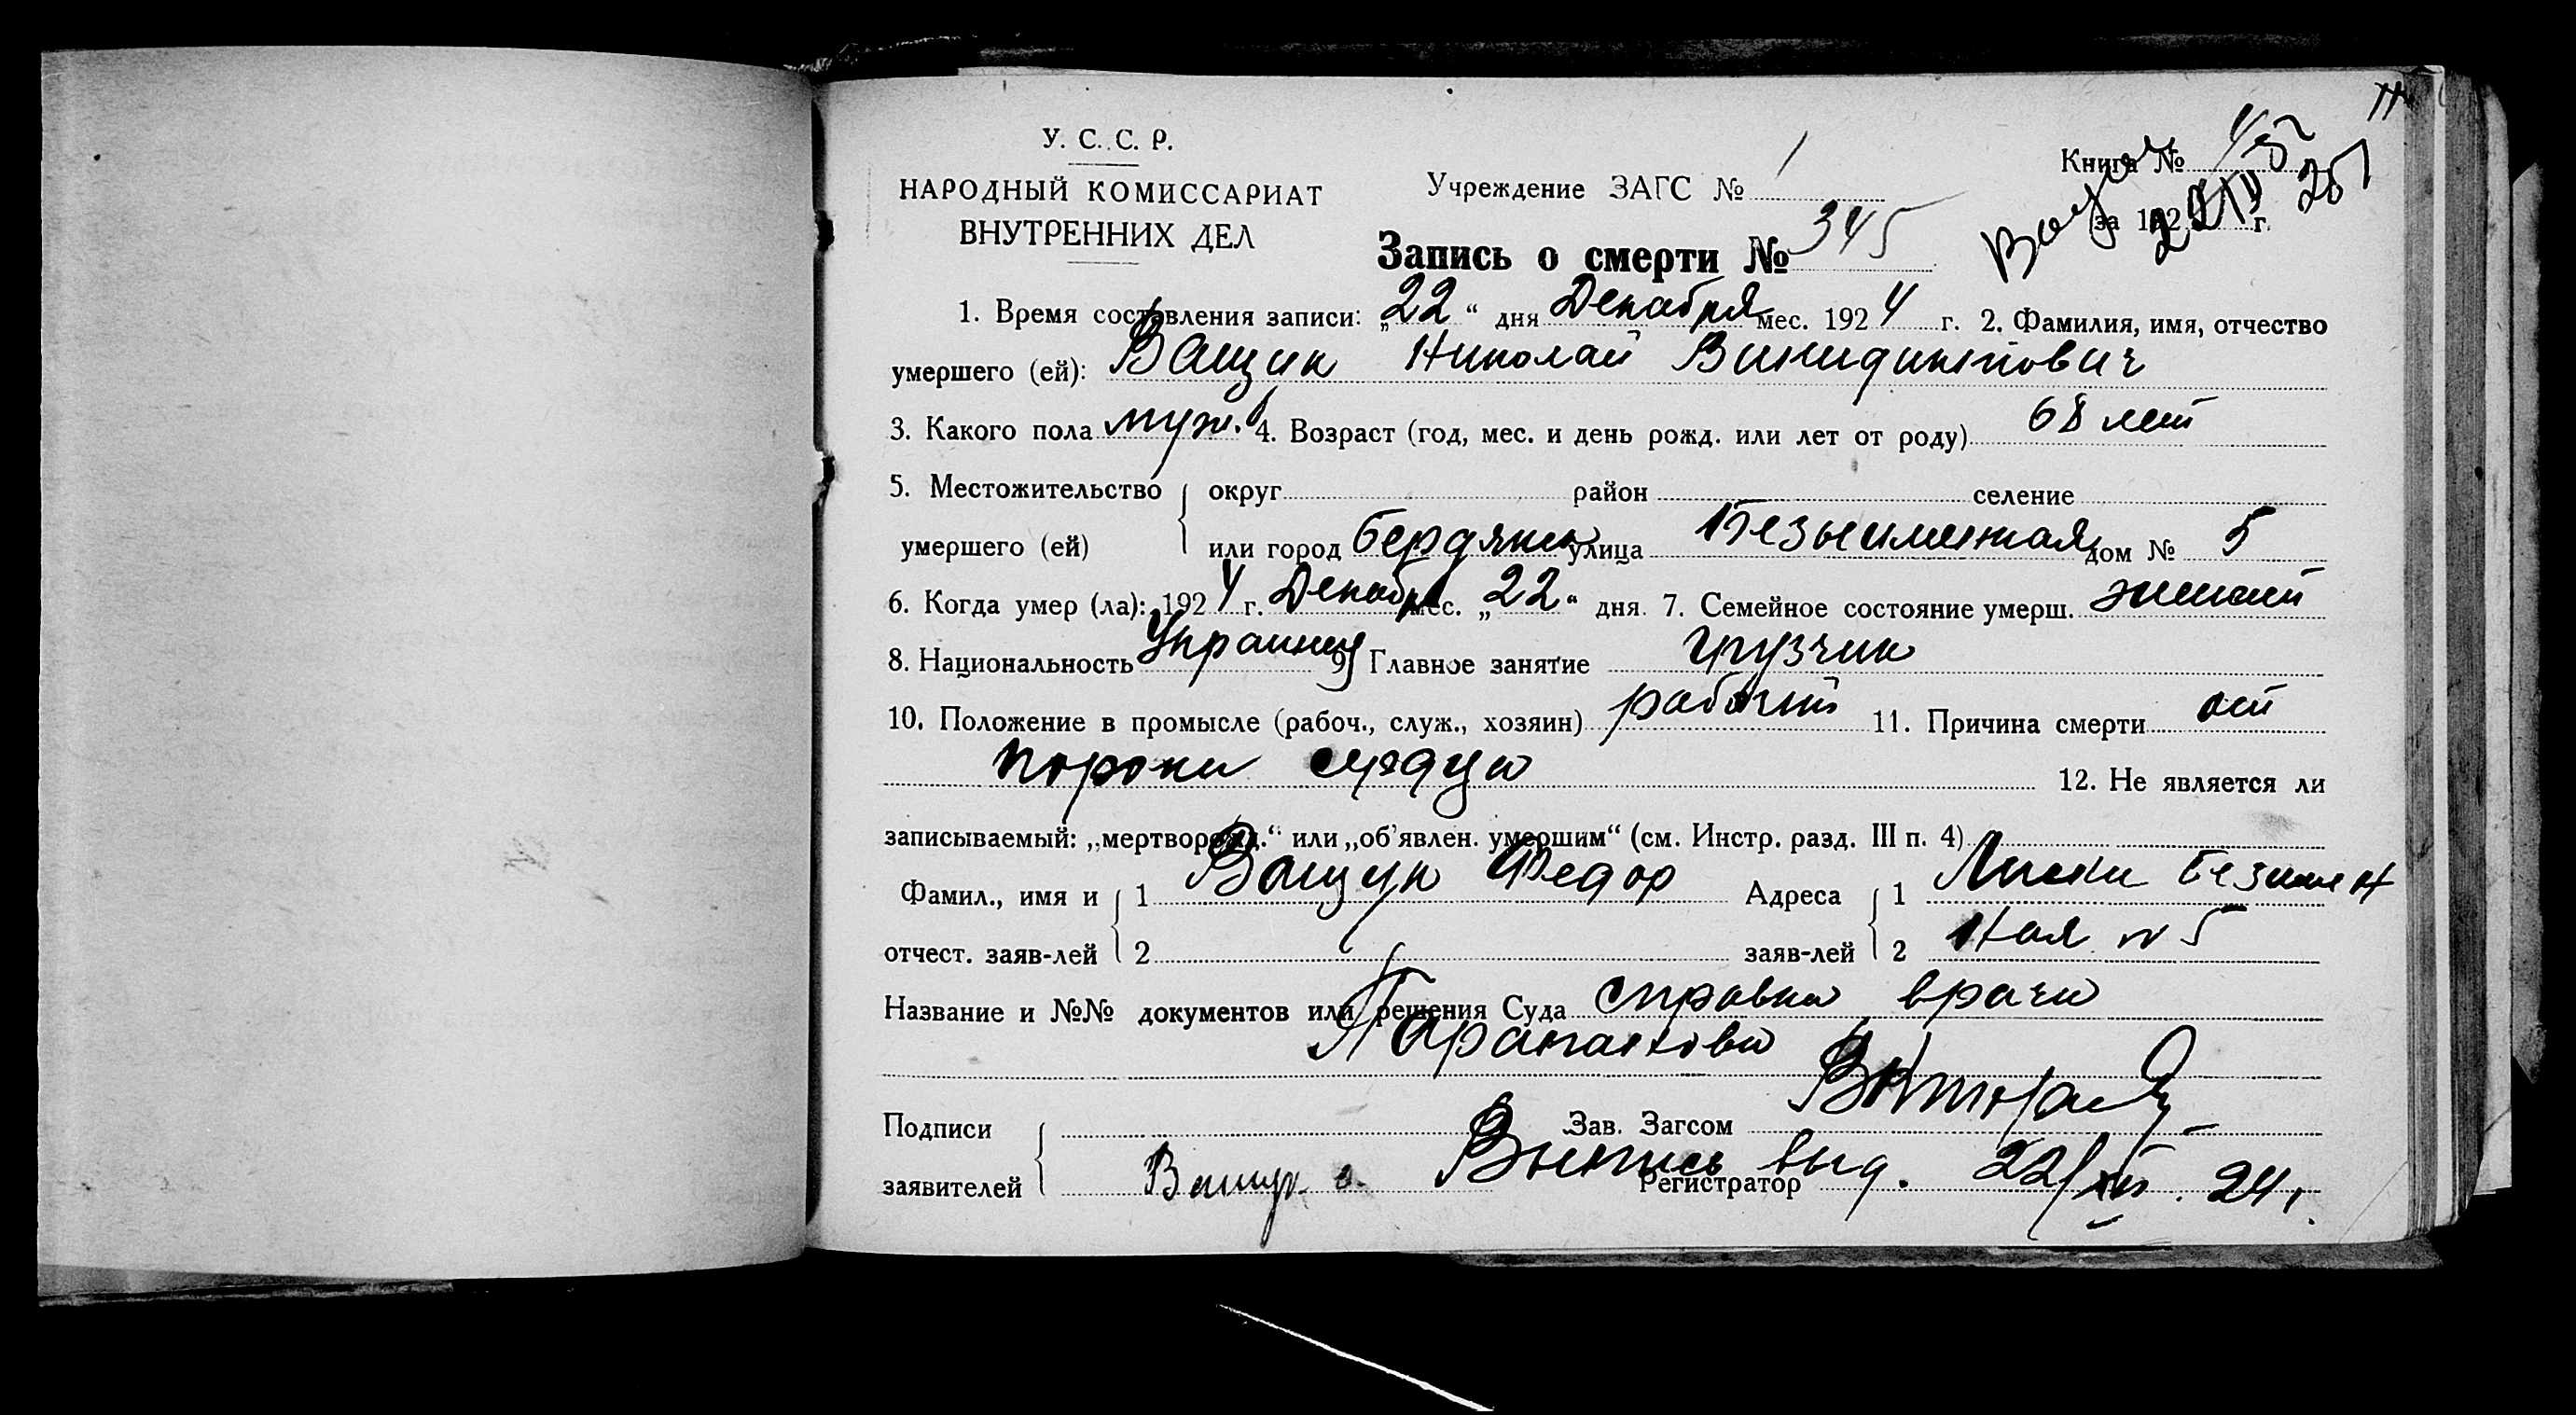 У. С. С. Р.
НАРОДНЫЙ КОМИССАРИАТ
ВНУТРЕННИХ ДЕЛ
Учреждение ЗАГС № 1
Книга №
за 192 г.
Запись о смерти № 345
1. Время составления записи: „22“ дня Декабря мес. 1924 г. 2. Фамилия, имя, отчество
умершего (ей): Ващук Николай
3. Какого пола муж. 4. Возраст (год, мес. и день рожд. или лет от роду) 68 лет
5. Местожительство округ район селение
умершего (ей) или город Бердянск улица Безыименная дом № 5
6. Когда умер (ла): 1924 г. Декабр мес. „22“ дня. 7. Семейное состояние умерш. женат
8. Национальность Украинец 9. Главное занятие грузчик
10. Положение в промысле (рабоч., служ., хозяин) рабочий 11. Причина смерти от
порока сердца 12. Не является ли
записываемый: „мертворожд.“ или „об'явлен. умершим“ (см. Инстр. разд. III п. 4)
Фамил., имя и 1 Ващук Федор Адреса 1 Лиски Безимен
отчест. заяв-лей 2 заяв-лей 2 ная № 5
Название и №№ документов или решения Суда справка врача
Подписи Зав. Загсом
заявителей Ващук Регистратор
Выпись выд. 22/XII. 24 г.